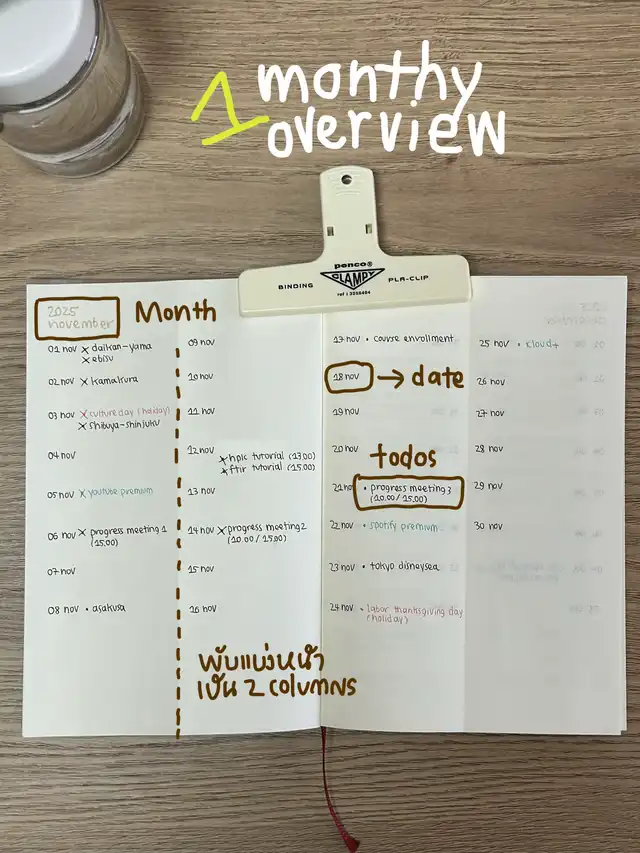 1 monthy
overview
penco®
BINDING CLAMPY PLA-CLIP
2025
november
Month
01 nov × daikan-yama
× ebisu
02 nov × kamakura
03 nov × culture day (holiday)
× shibuya-shinjuku
04 nov
05 nov × youtube premium
06 nov × progress meeting 1
(15.00)
07 nov
08 nov • asakusa
09 nov
10 nov
11 nov
12 nov
× hplc tutorial (13.00)
× ftir tutorial (15.00)
13 nov
14 nov × progress meeting 2
(10.00/15.00)
15 nov
16 nov
พับแบ่งหน้า
เป็น 2 columns
17 nov • course enrollment
18 nov → date
19 nov
20 nov
todos
21 nov • progress meeting 3
(10.00/15.00)
22 nov • spotify premium
23 nov • tokyo disneysea
24 nov • labor thanksgiving day
(holiday)
25 nov • kloud+
26 nov
27 nov
28 nov
29 nov
30 nov